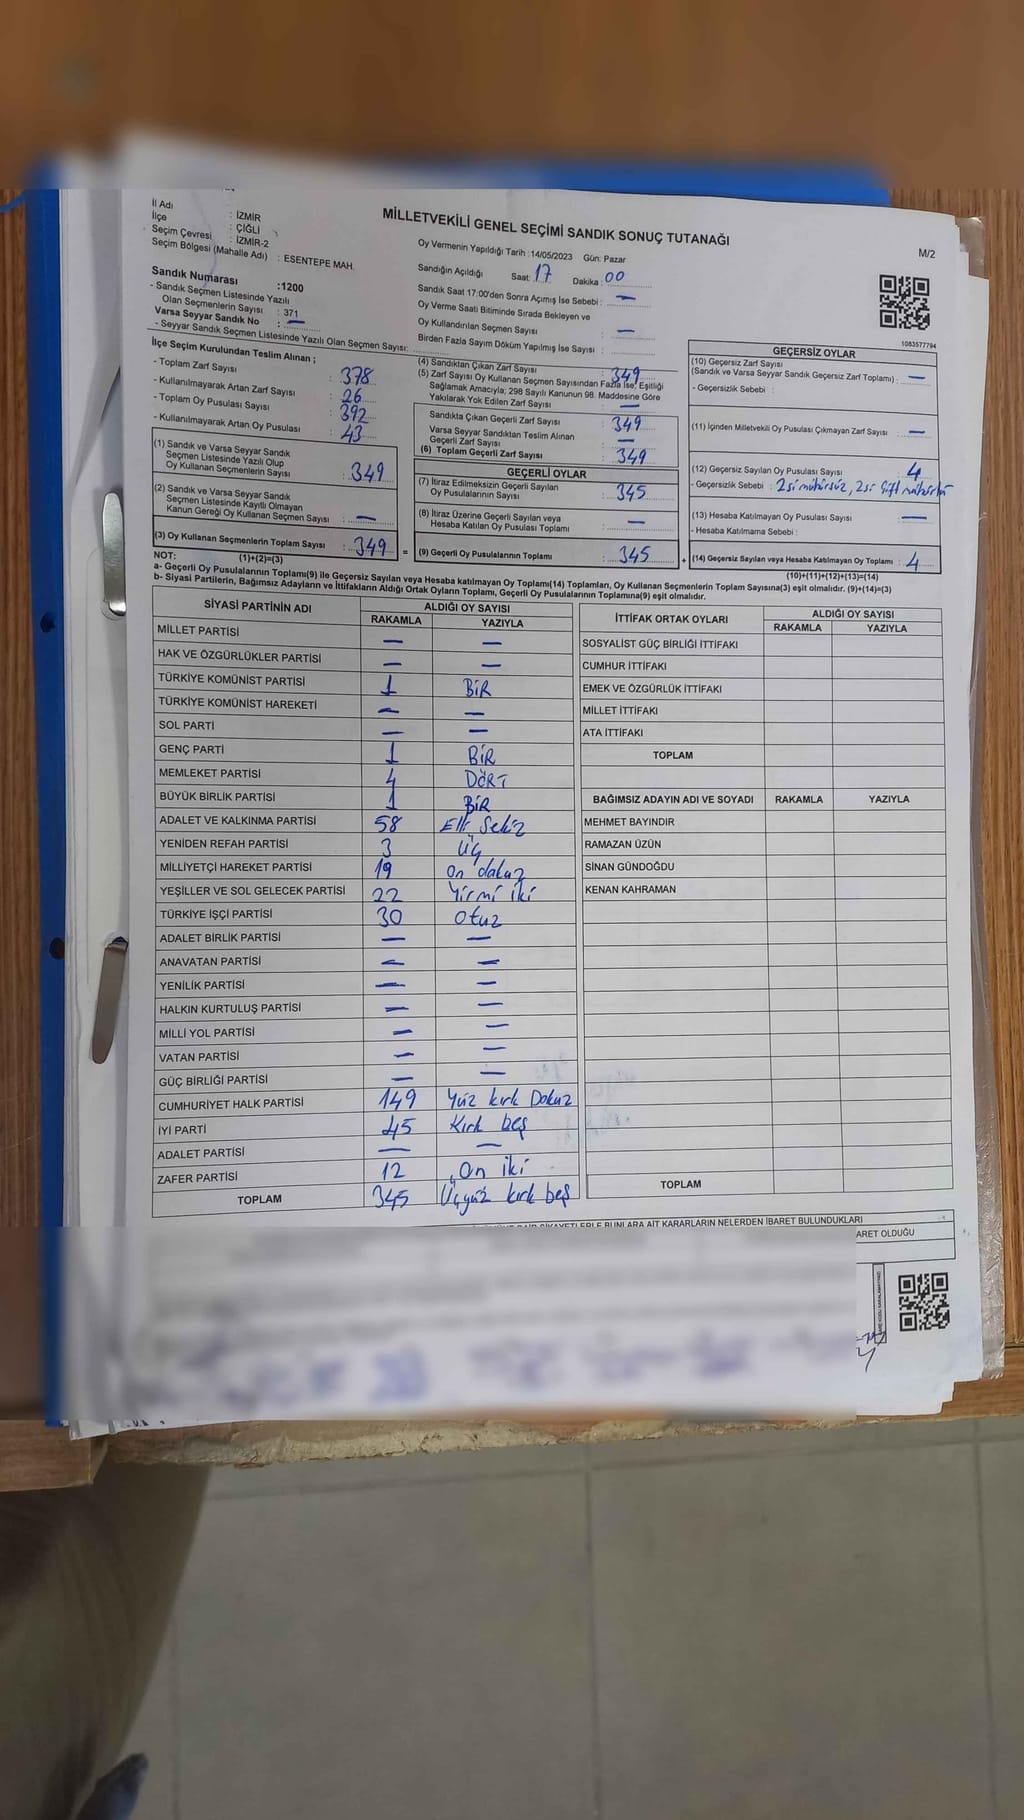 MİLLETVEKİLİ GENEL SEÇİMİ SANDIK SONUÇ TUTANAĞI
M/2
İl Adı : İZMİR
İlçe : ÇİĞLİ
Seçim Çevresi : İZMİR-2
Seçim Bölgesi (Mahalle Adı) : ESENTEPE MAH.
Sandık Numarası :1200
- Sandık Seçmen Listesinde Yazılı
Olan Seçmenlerin Sayısı : 371
Varsa Seyyar Sandık No : —
- Seyyar Sandık Seçmen Listesinde Yazılı Olan Seçmen Sayısı:
Oy Vermenin Yapıldığı Tarih :14/05/2023 Gün: Pazar
Sandığın Açıldığı Saat: 17 Dakika: 00
Sandık Saat 17:00'den Sonra Açımış İse Sebebi : —
Oy Verme Saati Bitiminde Sırada Bekleyen ve
Oy Kullandırılan Seçmen Sayısı : —
Birden Fazla Sayım Döküm Yapılmış İse Sayısı :
1083577794
İlçe Seçim Kurulundan Teslim Alınan ;
- Toplam Zarf Sayısı : 378
- Kullanılmayarak Artan Zarf Sayısı : 26
- Toplam Oy Pusulası Sayısı : 392
- Kullanılmayarak Artan Oy Pusulası : 43
(1) Sandık ve Varsa Seyyar Sandık
Seçmen Listesinde Yazılı Olup
Oy Kullanan Seçmenlerin Sayısı : 349
(2) Sandık ve Varsa Seyyar Sandık
Seçmen Listesinde Kayıtlı Olmayan
Kanun Gereği Oy Kullanan Seçmen Sayısı : —
(3) Oy Kullanan Seçmenlerin Toplam Sayısı : 349 =
(1)+(2)=(3)
(4) Sandıktan Çıkan Zarf Sayısı : 349
(5) Zarf Sayısı Oy Kullanan Seçmen Sayısından Fazla İse; Eşitliği
Sağlamak Amacıyla; 298 Sayılı Kanunun 98. Maddesine Göre
Yakılarak Yok Edilen Zarf Sayısı : —
Sandıkta Çıkan Geçerli Zarf Sayısı : 349
Varsa Seyyar Sandıktan Teslim Alınan
Geçerli Zarf Sayısı : —
(6) Toplam Geçerli Zarf Sayısı : 349
GEÇERLİ OYLAR
(7) İtiraz Edilmeksizin Geçerli Sayılan
Oy Pusulalarının Sayısı : 345
(8) İtiraz Üzerine Geçerli Sayılan veya
Hesaba Katılan Oy Pusulası Toplamı : —
(9) Geçerli Oy Pusulalarının Toplamı : 345 +
GEÇERSİZ OYLAR
(10) Geçersiz Zarf Sayısı
(Sandık ve Varsa Seyyar Sandık Geçersiz Zarf Toplamı) : —
- Geçersizlik Sebebi :
(11) İçinden Milletvekili Oy Pusulası Çıkmayan Zarf Sayısı : —
(12) Geçersiz Sayılan Oy Pusulası Sayısı : 4
- Geçersizlik Sebebi : 2si mühürsüz, 2si çift mühürlü
(13) Hesaba Katılmayan Oy Pusulası Sayısı : —
- Hesaba Katılmama Sebebi :
(14) Geçersiz Sayılan veya Hesaba Katılmayan Oy Toplamı : 4
(10)+(11)+(12)+(13)=(14)
NOT:
a- Geçerli Oy Pusulalarının Toplamı(9) ile Geçersiz Sayılan veya Hesaba katılmayan Oy Toplamı(14) Toplamları, Oy Kullanan Seçmenlerin Toplam Sayısına(3) eşit olmalıdır. (9)+(14)=(3)
b- Siyasi Partilerin, Bağımsız Adayların ve İttifakların Aldığı Ortak Oyların Toplamı, Geçerli Oy Pusulalarının Toplamına(9) eşit olmalıdır.
SİYASİ PARTİNİN ADI ALDIĞI OY SAYISI
RAKAMLA YAZIYLA
MİLLET PARTİSİ — —
HAK VE ÖZGÜRLÜKLER PARTİSİ — —
TÜRKİYE KOMÜNİST PARTİSİ 1 BİR
TÜRKİYE KOMÜNİST HAREKETİ — —
SOL PARTİ — —
GENÇ PARTİ 1 BİR
MEMLEKET PARTİSİ 4 DÖRT
BÜYÜK BİRLİK PARTİSİ 1 BİR
ADALET VE KALKINMA PARTİSİ 58 Elli Sekiz
YENİDEN REFAH PARTİSİ 3 Üç
MİLLİYETÇİ HAREKET PARTİSİ 19 On dokuz
YEŞİLLER VE SOL GELECEK PARTİSİ 22 Yirmi iki
TÜRKİYE İŞÇİ PARTİSİ 30 Otuz
ADALET BİRLİK PARTİSİ — —
ANAVATAN PARTİSİ — —
YENİLİK PARTİSİ — —
HALKIN KURTULUŞ PARTİSİ — —
MİLLİ YOL PARTİSİ — —
VATAN PARTİSİ — —
GÜÇ BİRLİĞİ PARTİSİ — —
CUMHURİYET HALK PARTİSİ 149 Yüz kırk Dokuz
İYİ PARTİ 45 Kırk beş
ADALET PARTİSİ — —
ZAFER PARTİSİ 12 On iki
TOPLAM 345 Üçyüz kırk beş
İTTİFAK ORTAK OYLARI ALDIĞI OY SAYISI
RAKAMLA YAZIYLA
SOSYALİST GÜÇ BİRLİĞİ İTTİFAKI
CUMHUR İTTİFAKI
EMEK VE ÖZGÜRLÜK İTTİFAKI
MİLLET İTTİFAKI
ATA İTTİFAKI
TOPLAM
BAĞIMSIZ ADAYIN ADI VE SOYADI RAKAMLA YAZIYLA
MEHMET BAYINDIR
RAMAZAN ÜZÜN
SİNAN GÜNDOĞDU
KENAN KAHRAMAN
TOPLAM
ŞİKAYETLERLE BUNLARA AİT KARARLARIN NELERDEN İBARET BULUNDUKLARI
ARET OLDUĞU